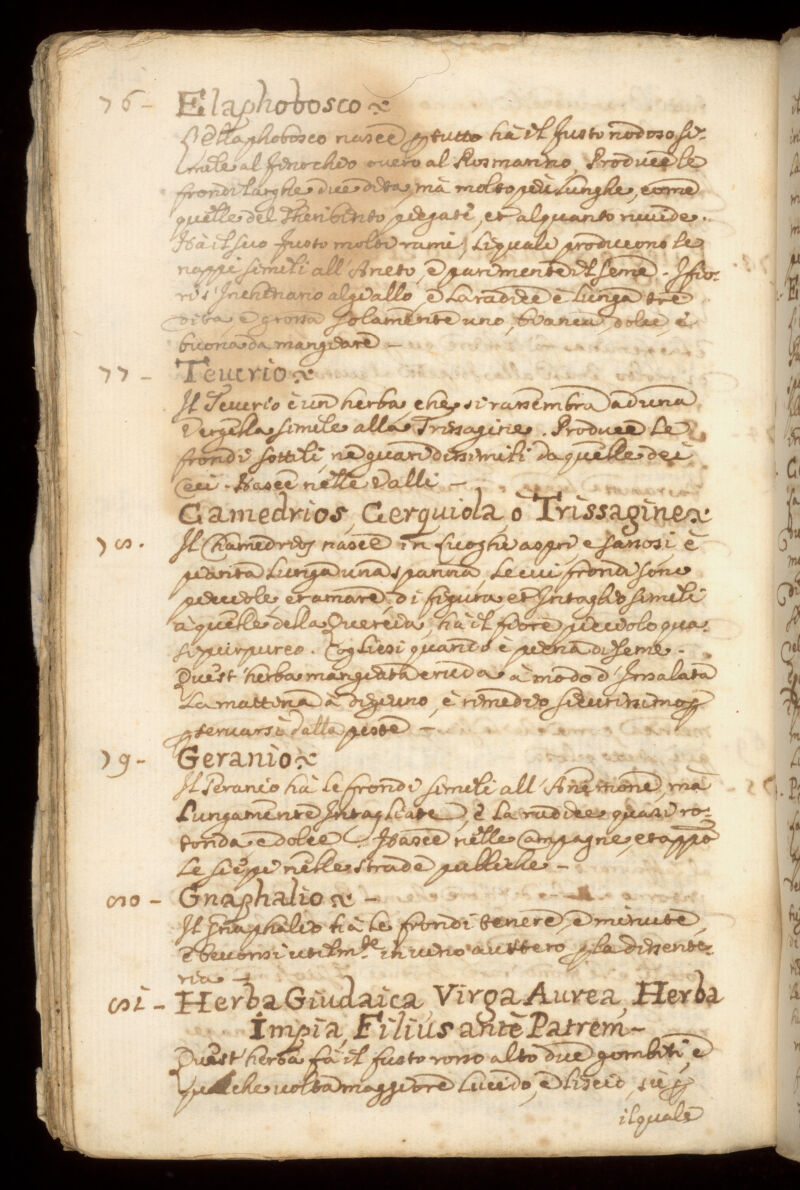 76 - Elaphobosco
L'ellaphobosco nasce p tutto hà il fusto nodoso si-
mile al finochio overo al Rosmarino. Produce le
frondi larghe due dita, mà molto più lunghe, come
quelle del Theribinto piegate, et alquanto ruvide.
Hà il suo fusto molti rami, li quali producono le
nappi simili all'Aneto, è parimente il seme. I fio-
ri s'inchinano al giallo, è la radice è lunga tre
dita, è grossa solamente uno, bianca dolce, è
buona da mangiare -
77 - Teucrio
Il Teucrio è un herba che si rassembra ad una
Vergella simile alla Trissagine. Produce le
frondi sottili, ne guari dissimili da quelle dei
Ceci. Nasce nelle Valli -
Camedrios, Cerquiola, ò Trissagine
78. Il Chamedrios nasce in luoghi aspri e sassosi, è
pianta lunga una spanna, le cui frondi sono
picciole, et amare, di figura et Intaglio simili
à quelle della Quercia, hà il fiore picciolo qua-
si purpureo. Cogliesi quando è piena di seme -
Quest'herba mangiata cruda à modo d'Insalata
la mattina à digiuno, è rimedio sicurissimo p
pservarsi dalla peste -
79 - Geranio
Il Geranio hà le frondi simili all'Anemone, mà
lungamente Intagliate, è la radice quasi ro-
tonda è dolce. Nasce nelle Campagne, et appo
le siepi nelle strade publiche -
80 - Gnaphalio -
Il Gnaphalio hà le frondi tenere, è minute,
è bevonsi utilmte in vino austero p la dissente-
ria -
81 - Herba Giudaica, Virga Aurea, Herba
Impia, Filius antè Patrem -
Quest'herba fà il fusto rosso alto due gombiti, è
qualche volta maggiore lucido, è liscio, sù p
il quale